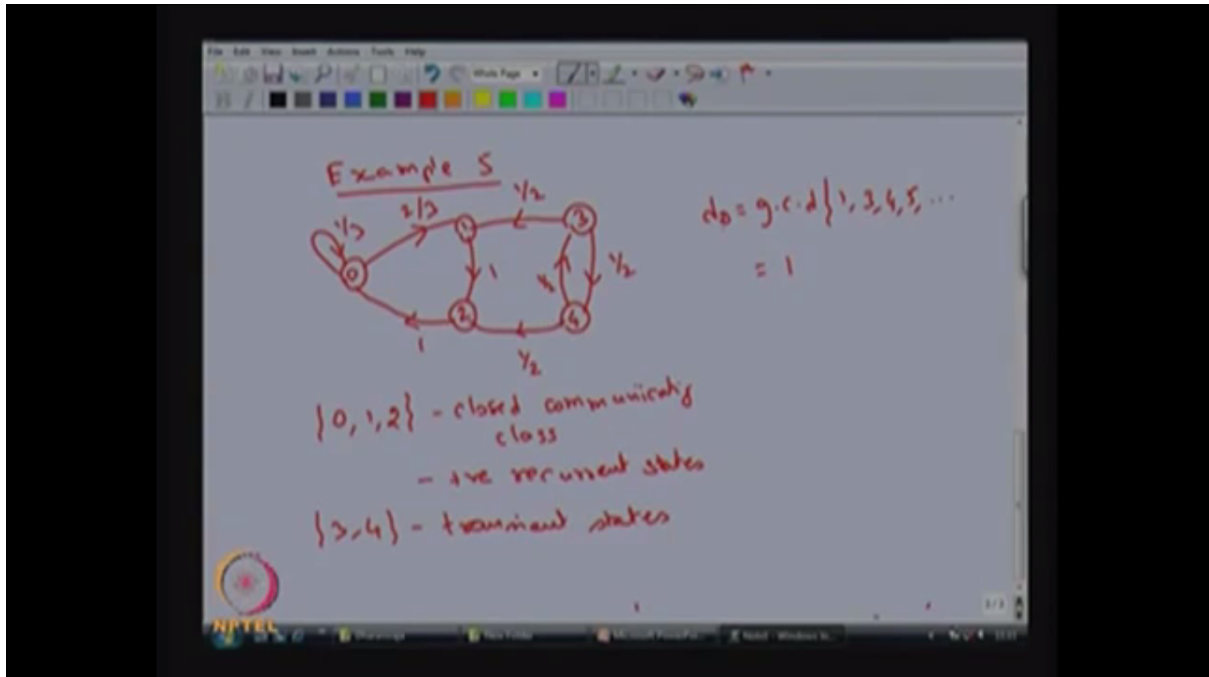 File Edit View Insert Actions Tools Help
Whole Page
B I
Example 5
1/3
2/3
1/2
0
1
3
1
1/2
1/2
2
4
1
1/2
d₀ = g.c.d {1, 3, 4, 5, ...
= 1
{0, 1, 2} - closed communicatig
class
- +ve recurrent states
{3, 4} - transient states
NPTEL
New Folder